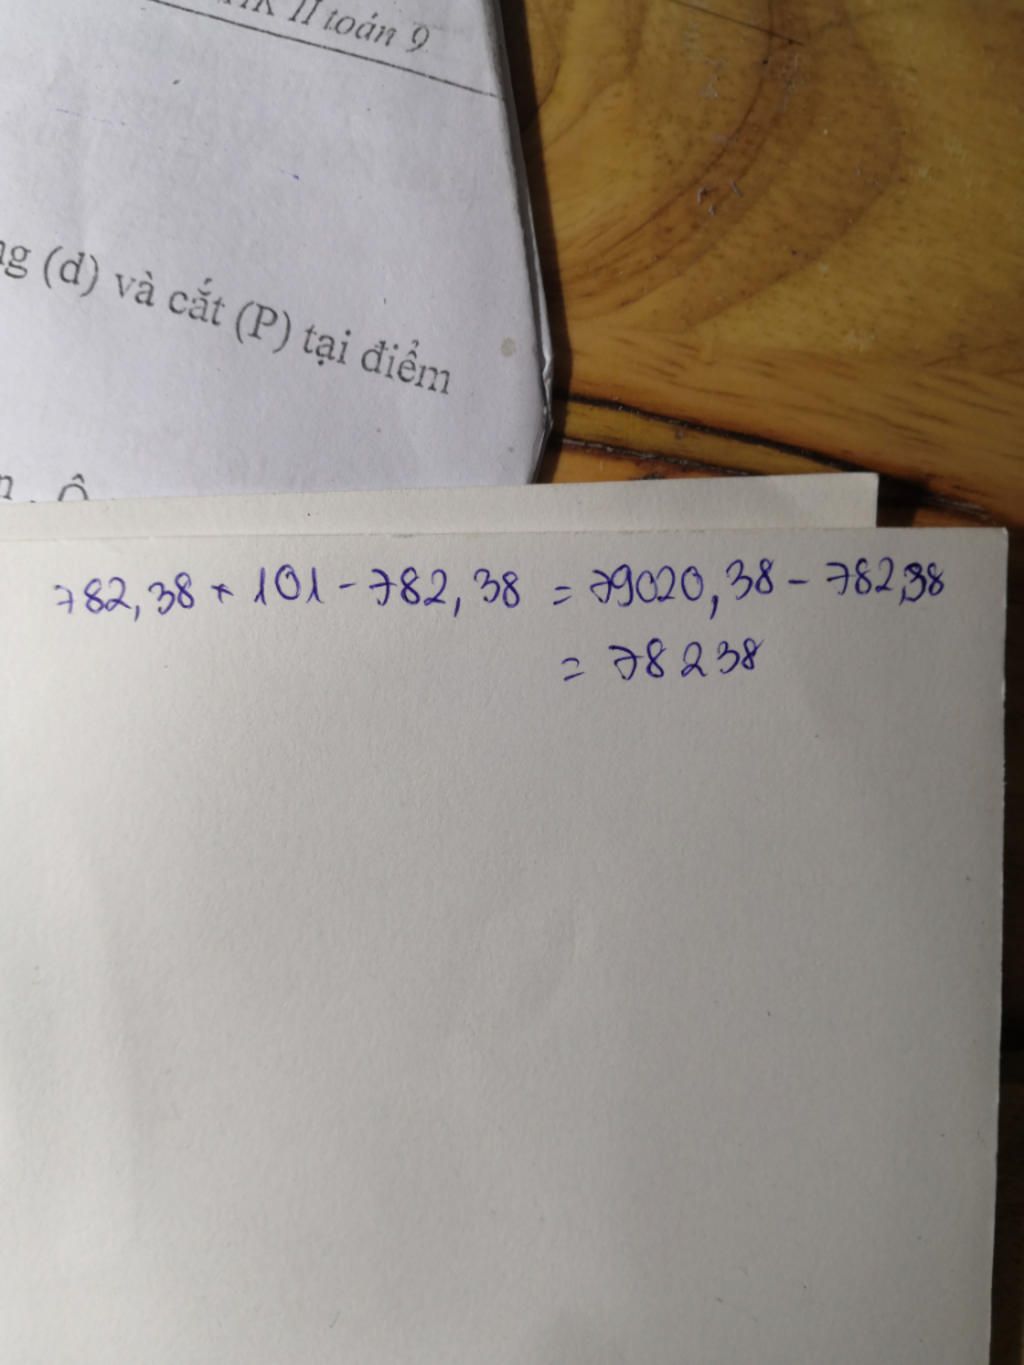 II toán 9
(d) và cắt (P) tại điểm
782,38 + 101 - 782,38 = 79020,38 - 782,38
= 78238